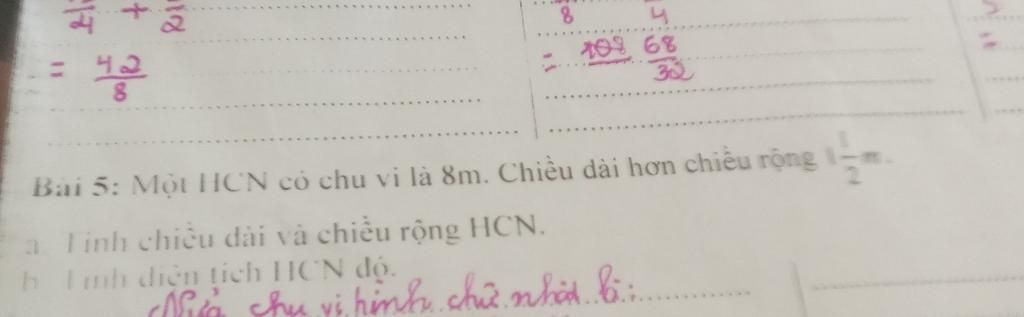 4 + 2
8 4
= 42/8
= 68/32
=
Bài 5: Một HCN có chu vi là 8m. Chiều dài hơn chiều rộng 1 1/2 m.
a. Tính chiều dài và chiều rộng HCN.
b. Tính diện tích HCN đó.
Nửa chu vi hình chữ nhật là: